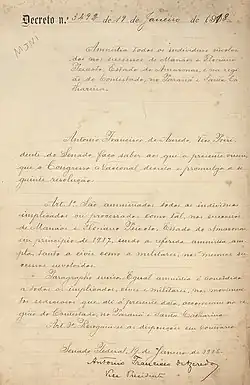 Decreto n.º 3492 de 19 de Janeiro de 1918.
Amnistia todos os individuos
nos successos de Manáos e Floriano
Peixoto, Estado do Amazonas, e na região
do Contestado, no Paraná e Santa Ca
tharina.
Antonio Francisco de Azeredo, Vice Presi
dente do Senado, faço saber aos que o presente virem
que o Congresso Nacional decreta e promulga a se
guinte resolução:
Art. 1º São amnistiados todos os individuos
implicados ou processados como tal, nos successos
de Manáos e Floriano Peixoto, Estado do Amazonas
em principio de 1917, sendo a referida amnistia am
pla, tanto a civis como a militares, nos mesmos suc
cessos envolvidos.
Paragrapho unico. Egual amnistia é concedida
a todos os implicados, civis e militares, nos movimen
tos sediciosos que até á presente data, occorreram na re
gião do Contestado, no Paraná e Santa Catharina.
Art. 2º Revogam-se as disposições em contrario.
Senado Federal, 19 de Janeiro de 1918.
Antonio Francisco de Azeredo
Vice Presidente